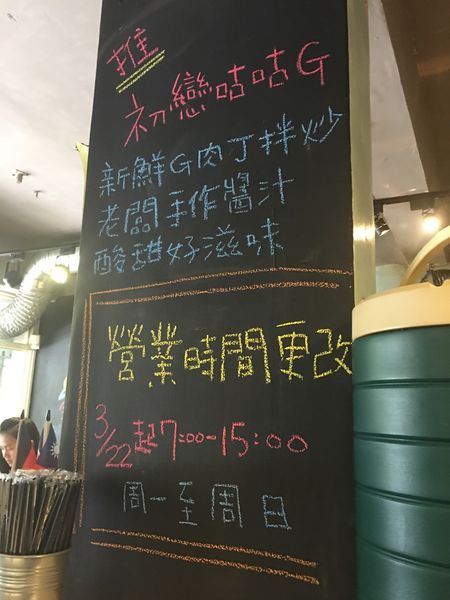 推
初戀咕咕G
新鮮G肉丁拌炒
老闆手作醬汁
酸甜好滋味
營業時間更改
3/22起7:00-15:00
周一至周日